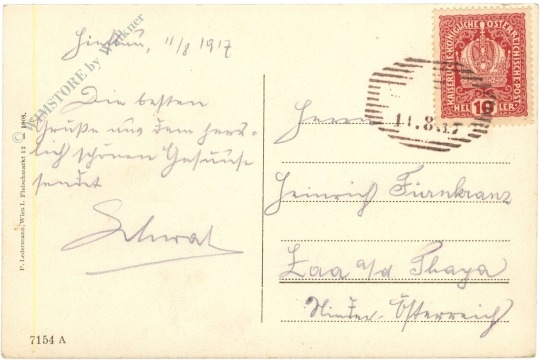 Hieflau, 11/8 1917
Die besten
Grüße aus dem herr-
lich schönen Gesäuse
sendet
Herrn
Heinrich Fürnkranz
Laa a/d Thaya
Nieder-Österreich
KAISERLICH KÖNIGLICHE ÖSTERREICHISCHE POST
HELLER 10 HELLER
11.8.17
© WIMSTORE by Winkner
P. Ledermann, Wien I. Fleischmarkt 12
7154 A